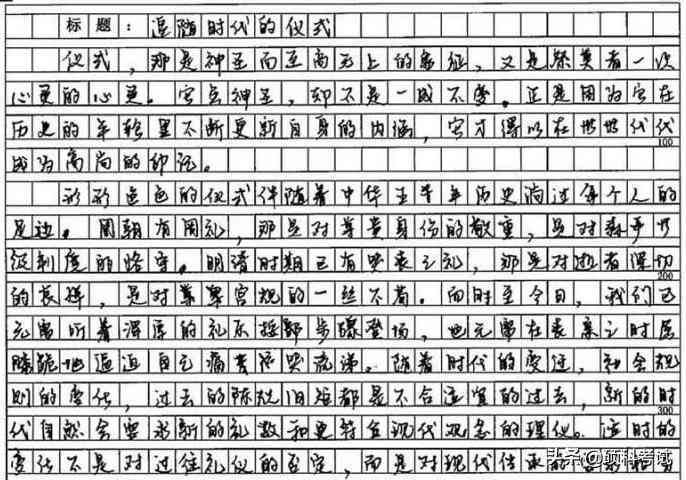 标题：追随时代的仪式
仪式，那是神圣而至高无上的象征，又是祭奠者一次
心灵的心灵。它虽神圣，却不是一成不变。正是因为它在
历史的年轮里不断更新自身的内涵，它才得以在世世代代
成为高尚的印记。
100
形形色色的仪式伴随着中华五千年历史淌过每个人的
足边。周朝有周礼，那是对尊贵身份的敬重，是对森严
级制度的恪守。明清时期已有哭丧之礼，那是对逝者深切
200
的哀悼，是对繁冗宫规的一丝不苟。而时至今日，我们已
无需听着浑厚的礼乐按部步骤登场，也无需在丧亲之时屈
膝跪地逼迫自己痛哭流涕。随着时代的变迁，社会规
则的变化，过去的陈规旧矩都是不合适宜的过去，新的时
300
代自然会要求新的礼数和更符合现代观念的理仪。这时的
变化不是对过往礼仪的否定，而是对现代传承的
头条@硕科考试